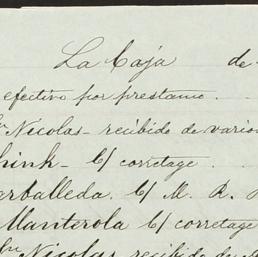 La Caja de
efectivo por prestamo.
Nicolas - recibido de varios
hink - C/ corretage.
arballeda. C/ M. R.
Manterola C/ corretage
Nicolas recibido de